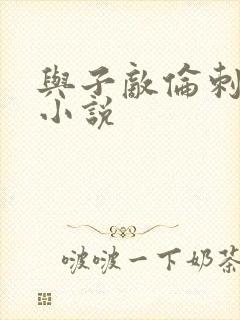 與子敵倫刺
小說
啵啵一下奶茶